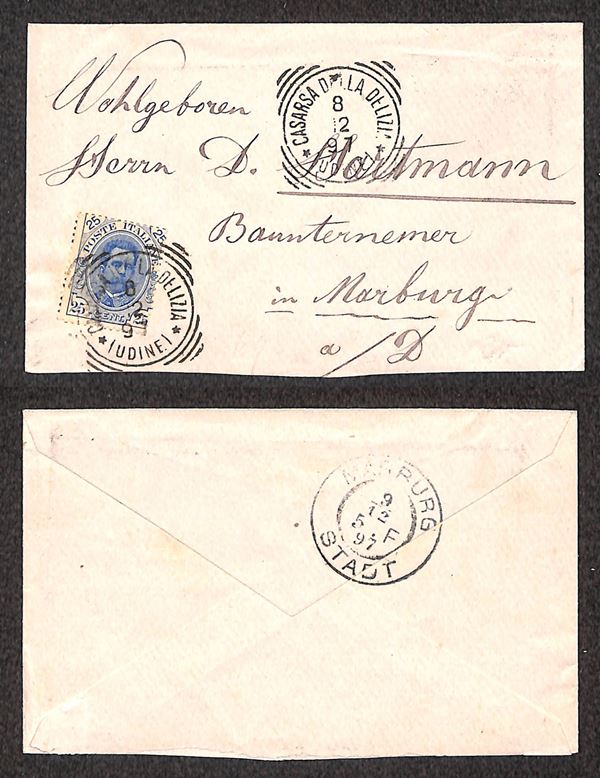 Wohlgeboren
Herrn D. Hartmann
Bauunternemer
in Marburg
a/D
CASARSA DELLA DELIZIA
8
12
97
(UDINE)
25 25
POSTE ITALIANE
25 CENT. 25
LA DELIZIA
8
12
9
(UDINE)
MARBURG
9
12
5 F
97
STADT